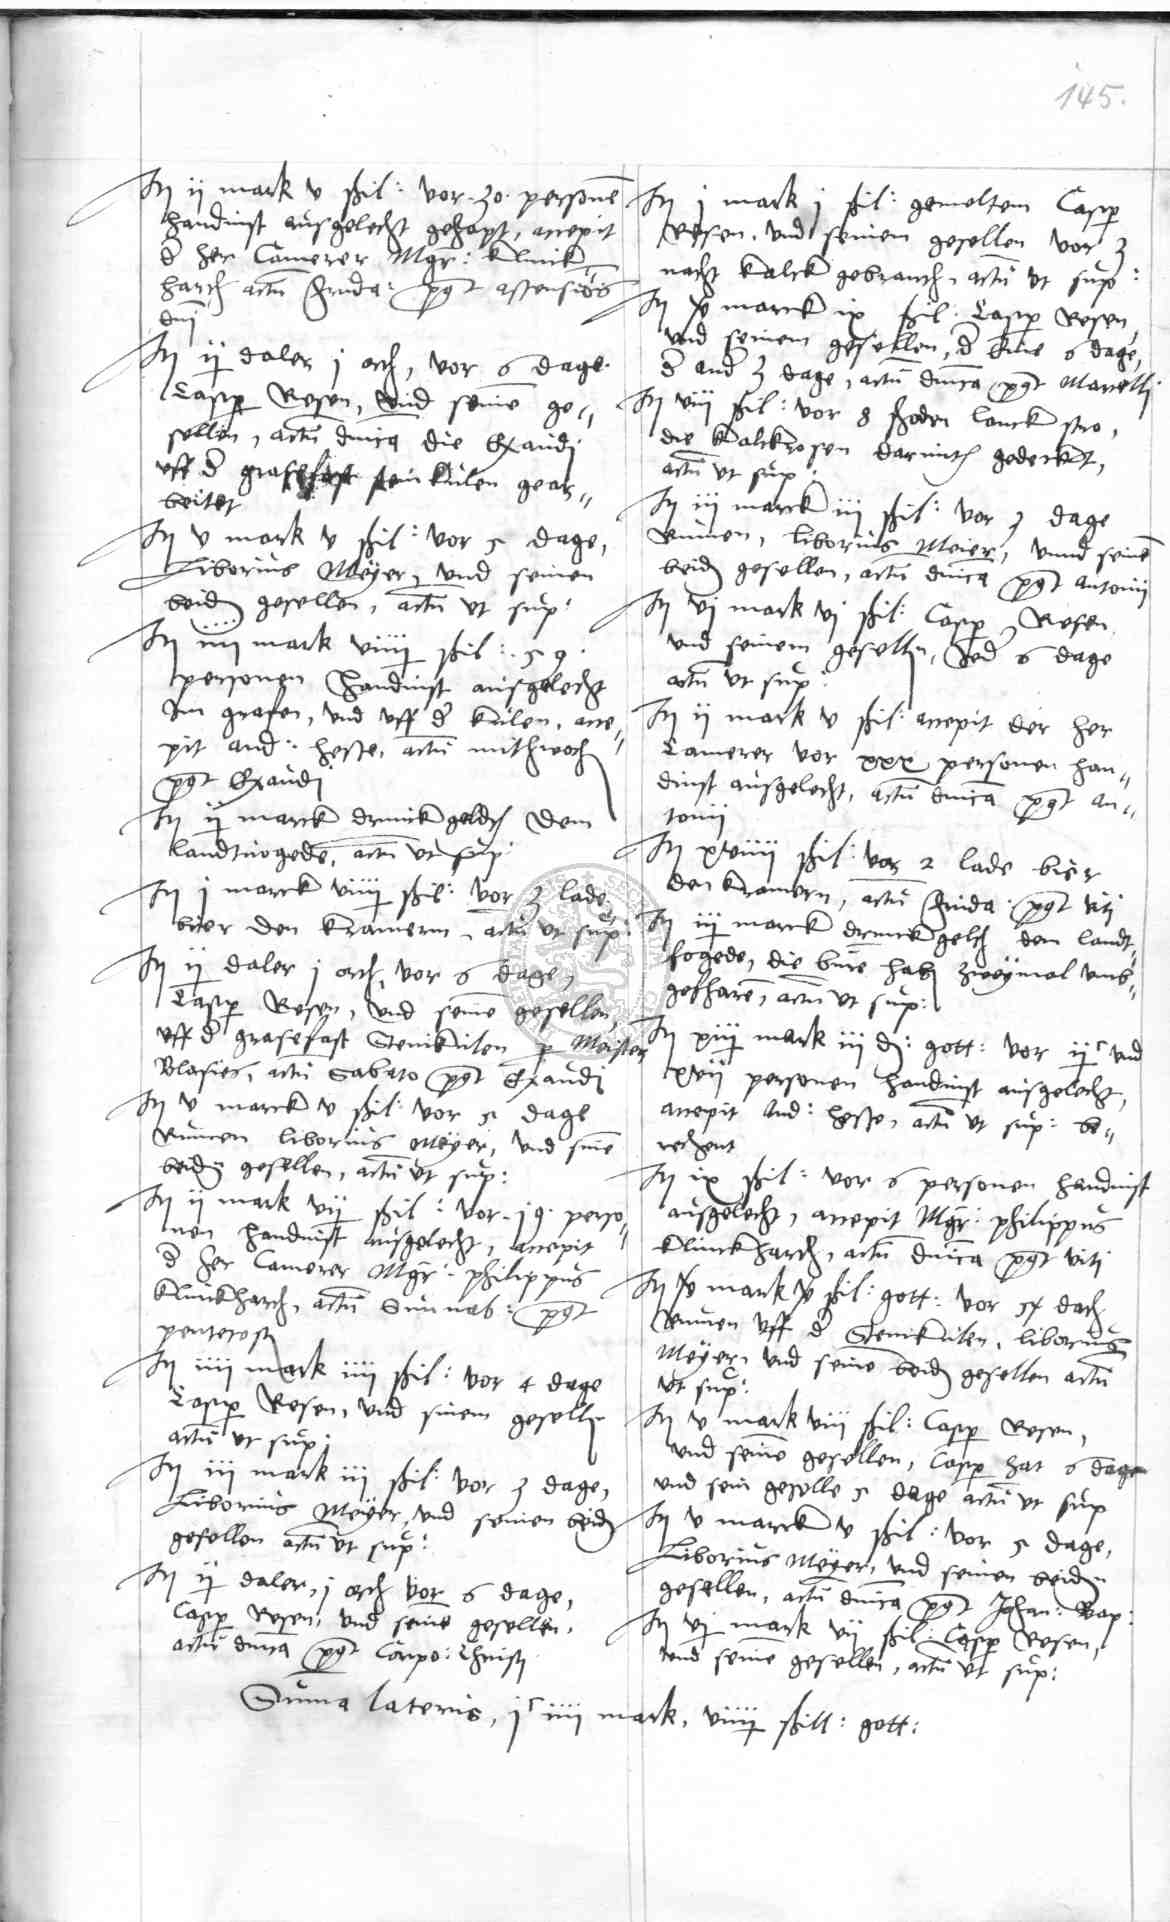 145.
It ij mark v ßil: vor 30. personē
handinst ausgelecht gehapt, accepit
d her Camerer Mgr: Klinck
harch actū frida: pꝰt ascensiōis
dni
It ij daler j orth, vor 6 dage
Caspar Resen, vnd seinē ge-
sellen, actū dnica die Exaudi
vff d grafefast steinkulen gear-
beitet
It v mark v ßil: vor 5 dage,
Liborius Meÿer, vnd seinen
beidn gesellen, actū vt sup:
It iiii mark viiij ßil: 59.
personen handinst ausgelecht
im grafen, vnd vff d kulen, acce-
pit And: hesse, actū mithwoch
pꝰt Exaudi
It ij marck drinckgeldt dem
landtuogede, actū vt sup:
It j marck viiij ßil: vor 3 lade
bier den kramern, actū vt sup:
It ij daler j orth, vor 6 dage,
Caspar Resen, vnd seinē gesellen,
vff d grafefast Steinkulen p Meister
Blasies, actū Sabato pꝰt Exaudi
It v marck v ßil: vor 5 dage
Rumen liborius Meÿer, vnd sinē
beidn gesellen, actū vt sup:
It ij mark vij ßil: vor 19. perso-
nen handinst ausgelecht, accepit
d her Camerer Mgr: philippus
Klinckharch, actū Sunnab: pꝰt
pentecost
It iiii mark iiii ßil: vor 4 dage
Caspar Resen, vnd sinem geselln
actū vt sup:
It iii mark iii ßil: vor 3 dage,
Liborius Meÿer, vnd seinen beidn
gesellen actū vt sup:
It ij daler, j orth vor 6 dage,
Caspar Resen, vnd seinē gesellen,
actū dnica pꝰt Corpo: Christi
It j mark j ßil: gemeltem Caspar
Resen, vnd seinem gesellen vor 3
nacht kalck gebranth, actū vt sup:
It marck ix ßil: Caspar Resen,
vnd seinem gesellen, d eine 6 dage,
d and 3 dage, actū dnica pꝰt Marcelli
It viii ßil: vor 8 schoden lanck stro,
die kalckrosen darmith gedeckt,
actū vt sup:
It iii marck iii ßil: vor 3 dage
Rumen, liborius Meier, vnnd seinē
beidn gesellen, actū dnica pꝰt Antonii
It vj mark vj ßil: Caspar Resen
vnd seinem geselln, Jed 6 dage
actū vt sup:
It ij mark v ßil: accepit der her
Camerer vor xxx personen han-
dinst ausgelecht, actū dnica pꝰt An-
tonii
It xviiii ßil: vor 2 lade bier
den kramern, actū frida: pꝰt viti
It iij marck drinckgelt dem landt-
fogede, die bure habn zweÿmal vmb-
gefharē, actū vt sup:
It xiij mark iii d: gott: vor ijc vnd
xvij personen handinst ausgelecht,
accepit And: hesse, actū vt sup: be-
rechent
It ix ßil: vor 6 personen handinst
ausgelecht, accepit Mgr: philippus
Klinckharch, actū dnica pꝰt viti
It mark ßil: gott: vor dach
Rumen vff d Steinkulen, liborius
Meÿer, vnd seinē beidn gesellen actū
vt sup:
It v mark viii ßil: Caspar Resen,
vnd seinē gesellen, Caspar hat 6 dage
vnd sein geselle 5 dage actū vt sup
It v marck v ßil: vor 5 dage,
Liborius Meÿer, vnd seinen beidn
gesellen, actū dnica pꝰt Johan: Bap:
It vj mark vij ßil: Caspar Resen,
vnd seinē gesellen, actū vt sup:
Suma lateris, jc iiii mark, viiij ßill: gott: